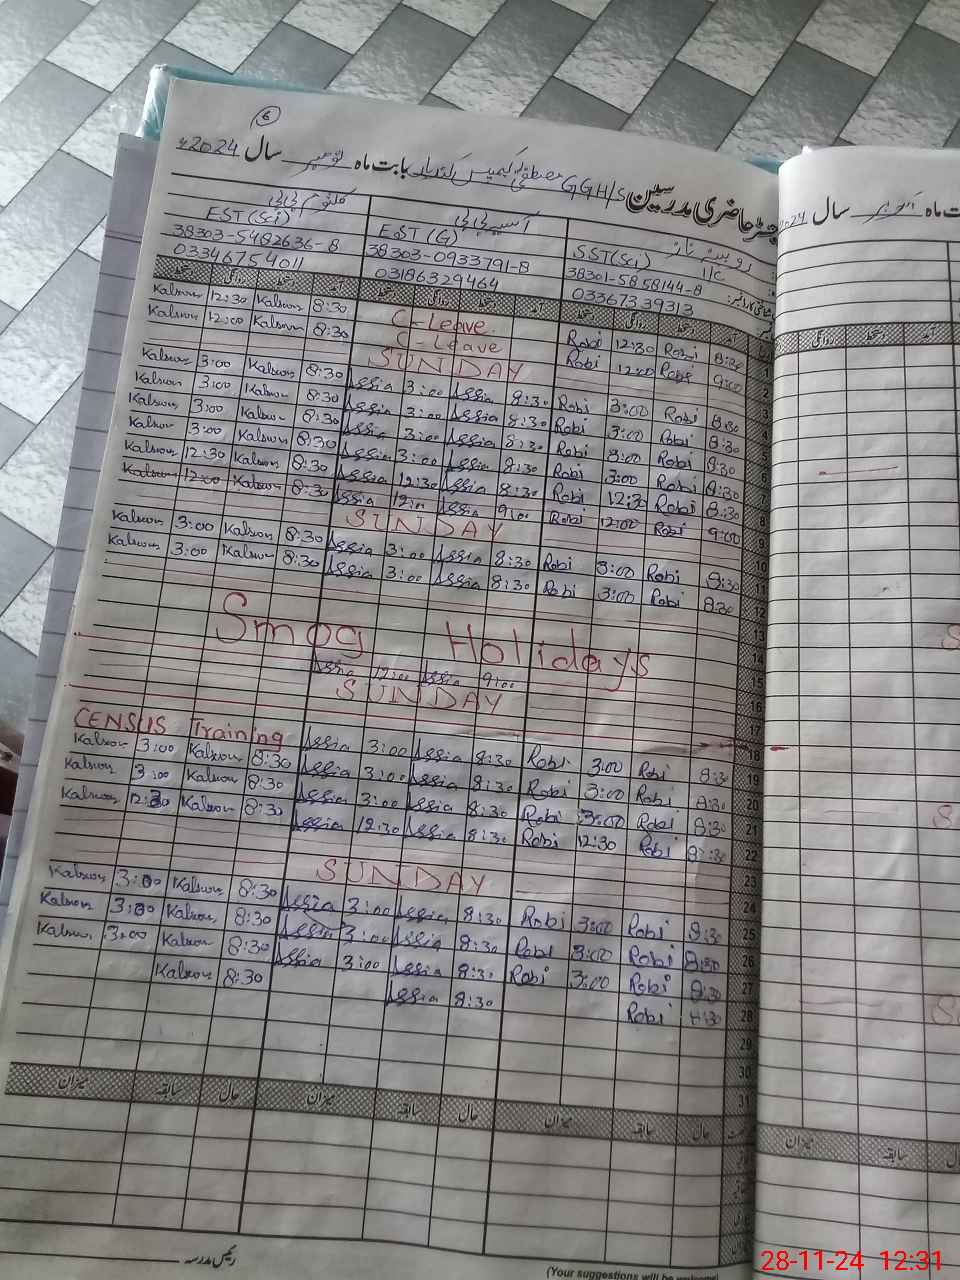 6
رجسٹر حاضری مدرسین GGH/S بابت ماہ نومبر سال 2024ء
روبینہ ناز
آسیہ بی بی
کلثوم بی بی
SST(Sci) IIC
EST (G)
EST(Sci)
38301-5858144-8
38303-0933791-8
38303-5482636-8
03367339313
03186329464
03346754011
Kalsoom 12:30 Kalsoom 8:30 C-Leave Robi 12:30 Robi 8:30 1
Kalsoom 12:00 Kalsoom 8:30 C-Leave Robi 12:00 Robi 9:00 2
SUNDAY 3
Kalsoom 3:00 Kalsoom 8:30 Assia 3:00 Assia 8:30 Robi 3:00 Robi 8:30 4
Kalsoom 3:00 Kalsoom 8:30 Assia 3:00 Assia 8:30 Robi 3:00 Robi 8:30
Kalsoom 3:00 Kalsoom 8:30 Assia 3:00 Assia 8:30 Robi 3:00 Robi 8:30 6
Kalsoom 3:00 Kalsoom 8:30 Assia 3:00 Assia 8:30 Robi 3:00 Robi 8:30 7
Kalsoom 12:30 Kalsoom 8:30 Assia 12:30 Assia 8:30 Robi 12:30 Robi 8:30 8
Kalsoom 12:00 Kalsoom 8:30 Assia 12:00 Assia 9:00 Robi 12:00 Robi 9:00 9
SUNDAY 10
Kalsoom 3:00 Kalsoom 8:30 Assia 3:00 Assia 8:30 Robi 3:00 Robi 8:30 11
Kalsoom 3:00 Kalsoom 8:30 Assia 3:00 Assia 8:30 Robi 3:00 Robi 8:30 12
13
14
Smog Holidays
15
Assia 12:00 Assia 9:00 16
SUNDAY 17
18
CENSUS Training Assia 3:00 Assia 8:30 Robi 3:00 Robi 8:30 19
Kalsoom 3:00 Kalsoom 8:30 Assia 3:00 Assia 8:30 Robi 3:00 Robi 8:30 20
Kalsoom 3:00 Kalsoom 8:30 Assia 3:00 Assia 8:30 Robi 3:00 Robi 8:30 21
Kalsoom 12:30 Kalsoom 8:30 Assia 12:30 Assia 8:30 Robi 12:30 Robi 8:30 22
23
SUNDAY 24
Kalsoom 3:00 Kalsoom 8:30 Assia 3:00 Assia 8:30 Robi 3:00 Robi 8:30 25
Kalsoom 3:00 Kalsoom 8:30 Assia 3:00 Assia 8:30 Robi 3:00 Robi 8:30 26
Kalsoom 3:00 Kalsoom 8:30 Assia 3:00 Assia 8:30 Robi 3:00 Robi 8:30 27
Kalsoom 8:30 Assia 8:30 Robi 8:30 28
29
30
31
حال سابقہ میزان حال سابقہ میزان حال سابقہ میزان
رئیس مدرسہ
(Your suggestions will be welcome)
ماہ اکتوبر سال 2024
سابقہ میزان
28-11-24 12:31